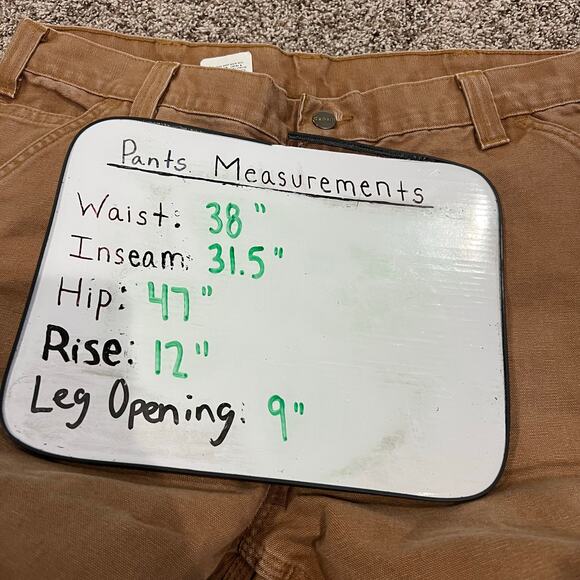 Pants Measurements
Waist: 38"
Inseam: 31.5"
Hip: 47"
Rise: 12"
Leg Opening: 9"